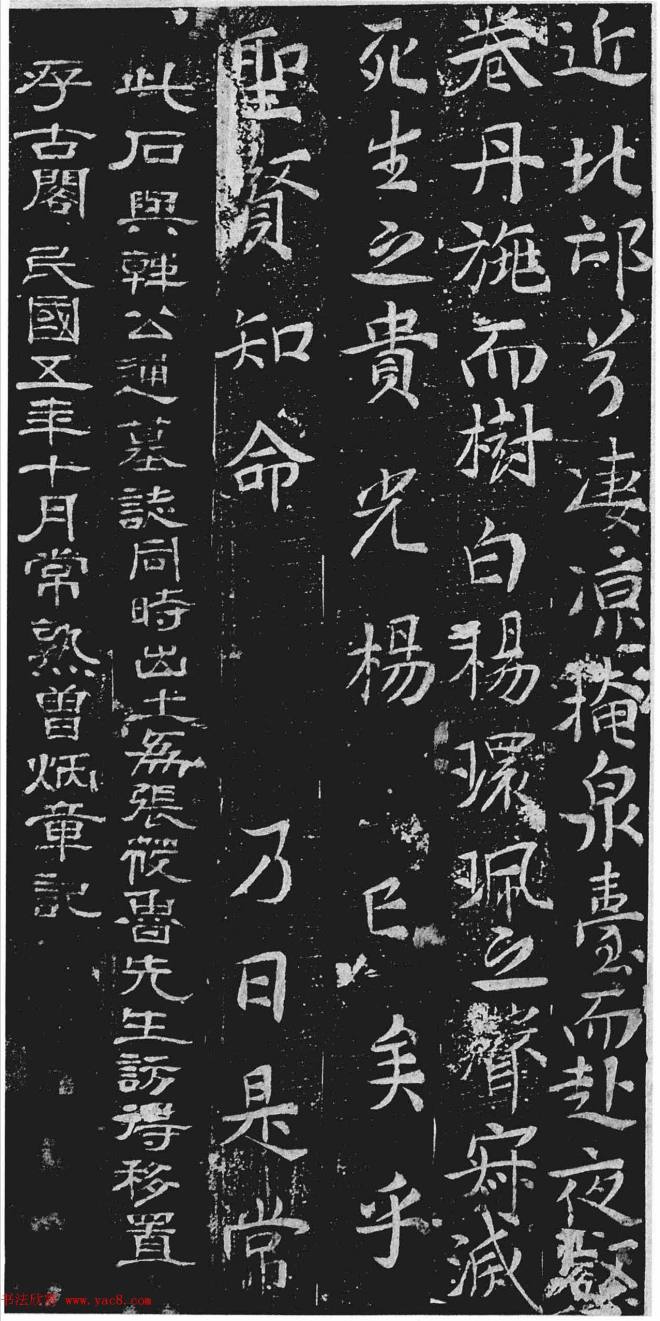 近北邙兮凄凉掩泉臺而赴夜壑
卷丹旐而樹白楊環珮之聲寂滅
死生之貴光楊 已矣乎
聖賢知命 乃曰是常
此石與韓公通墓誌同時出土為張筱魯先生訪得移置
存古閣 民國五年十月常熟曾炳章記
书法欣赏 www.yac8.com